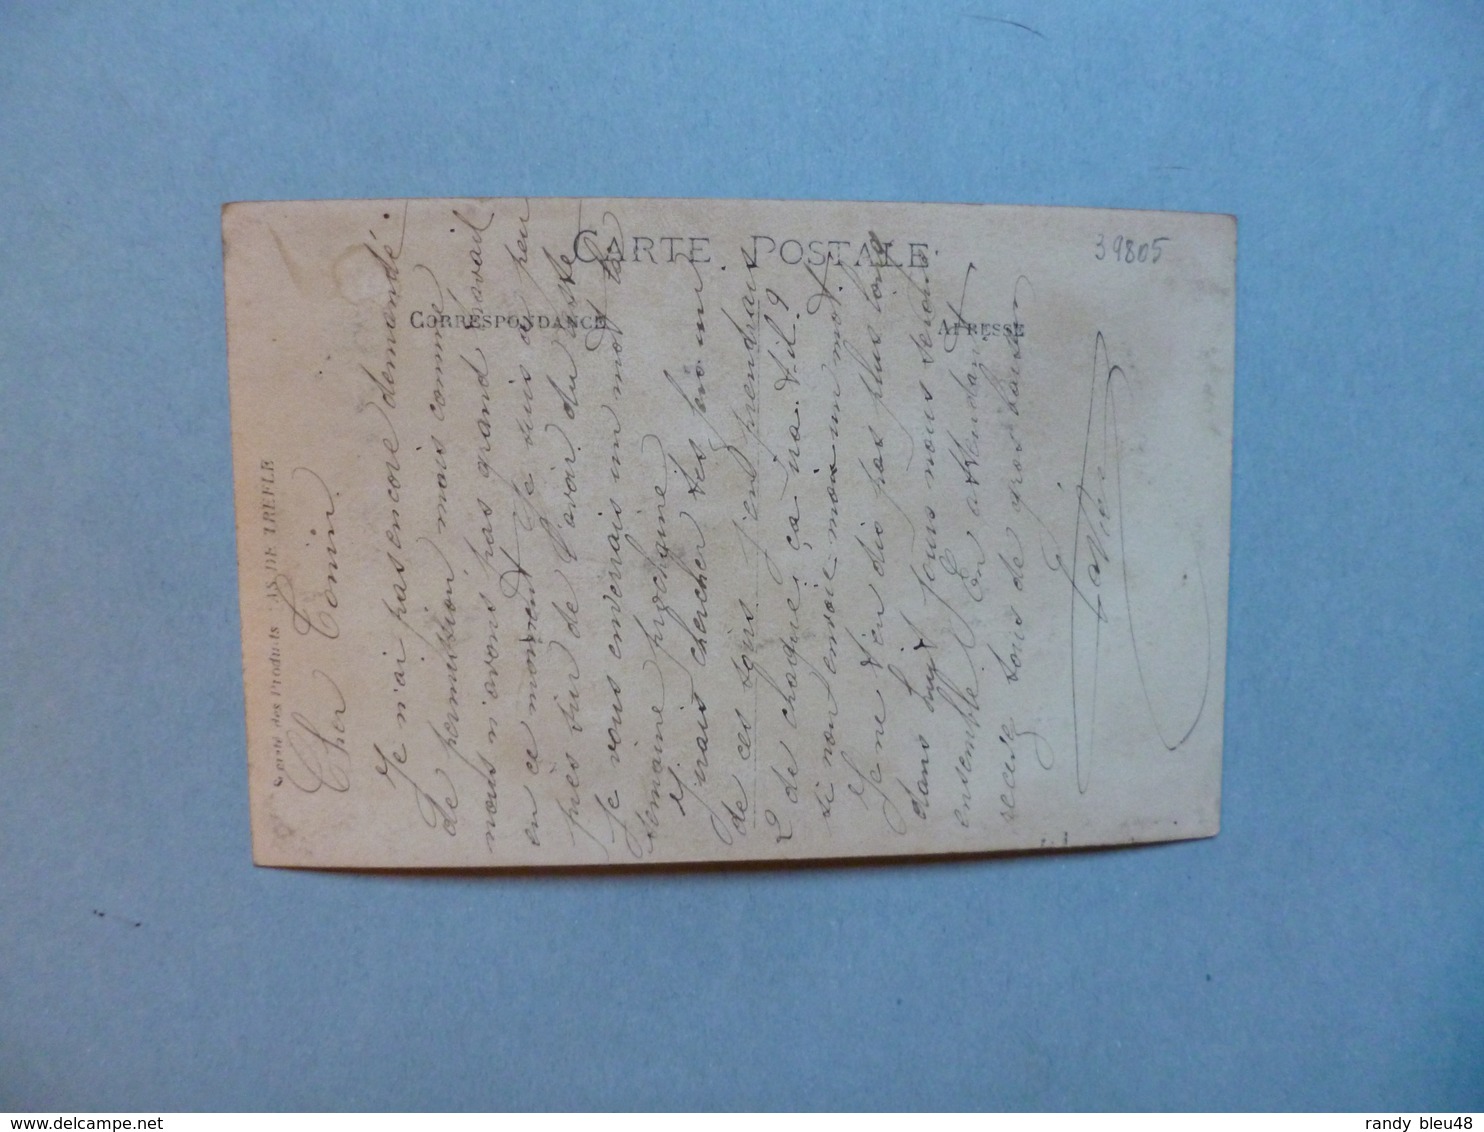 CARTE POSTALE
39805
CORRESPONDANCE
ADRESSE
des Produits AS DE TREFLE
Cher Tonin
Je n'ai pas encore demandé
de permission, mais comme
nous n'avons pas grand travail
en ce moment. Je suis a peu
près sur de l'avoir du reste
je vous enverrais un mot la
semaine prochaine
J'irais chercher tes
de ces jours j'en prendrais
2 de chaque, ça ira-t-il?
si non envoie moi un mot.
Je ne t'en dis pas plus long
dans huit jours nous serons
ensemble. En attendant
recevez tous de gros baisers
delcampe.net
randy bleu48